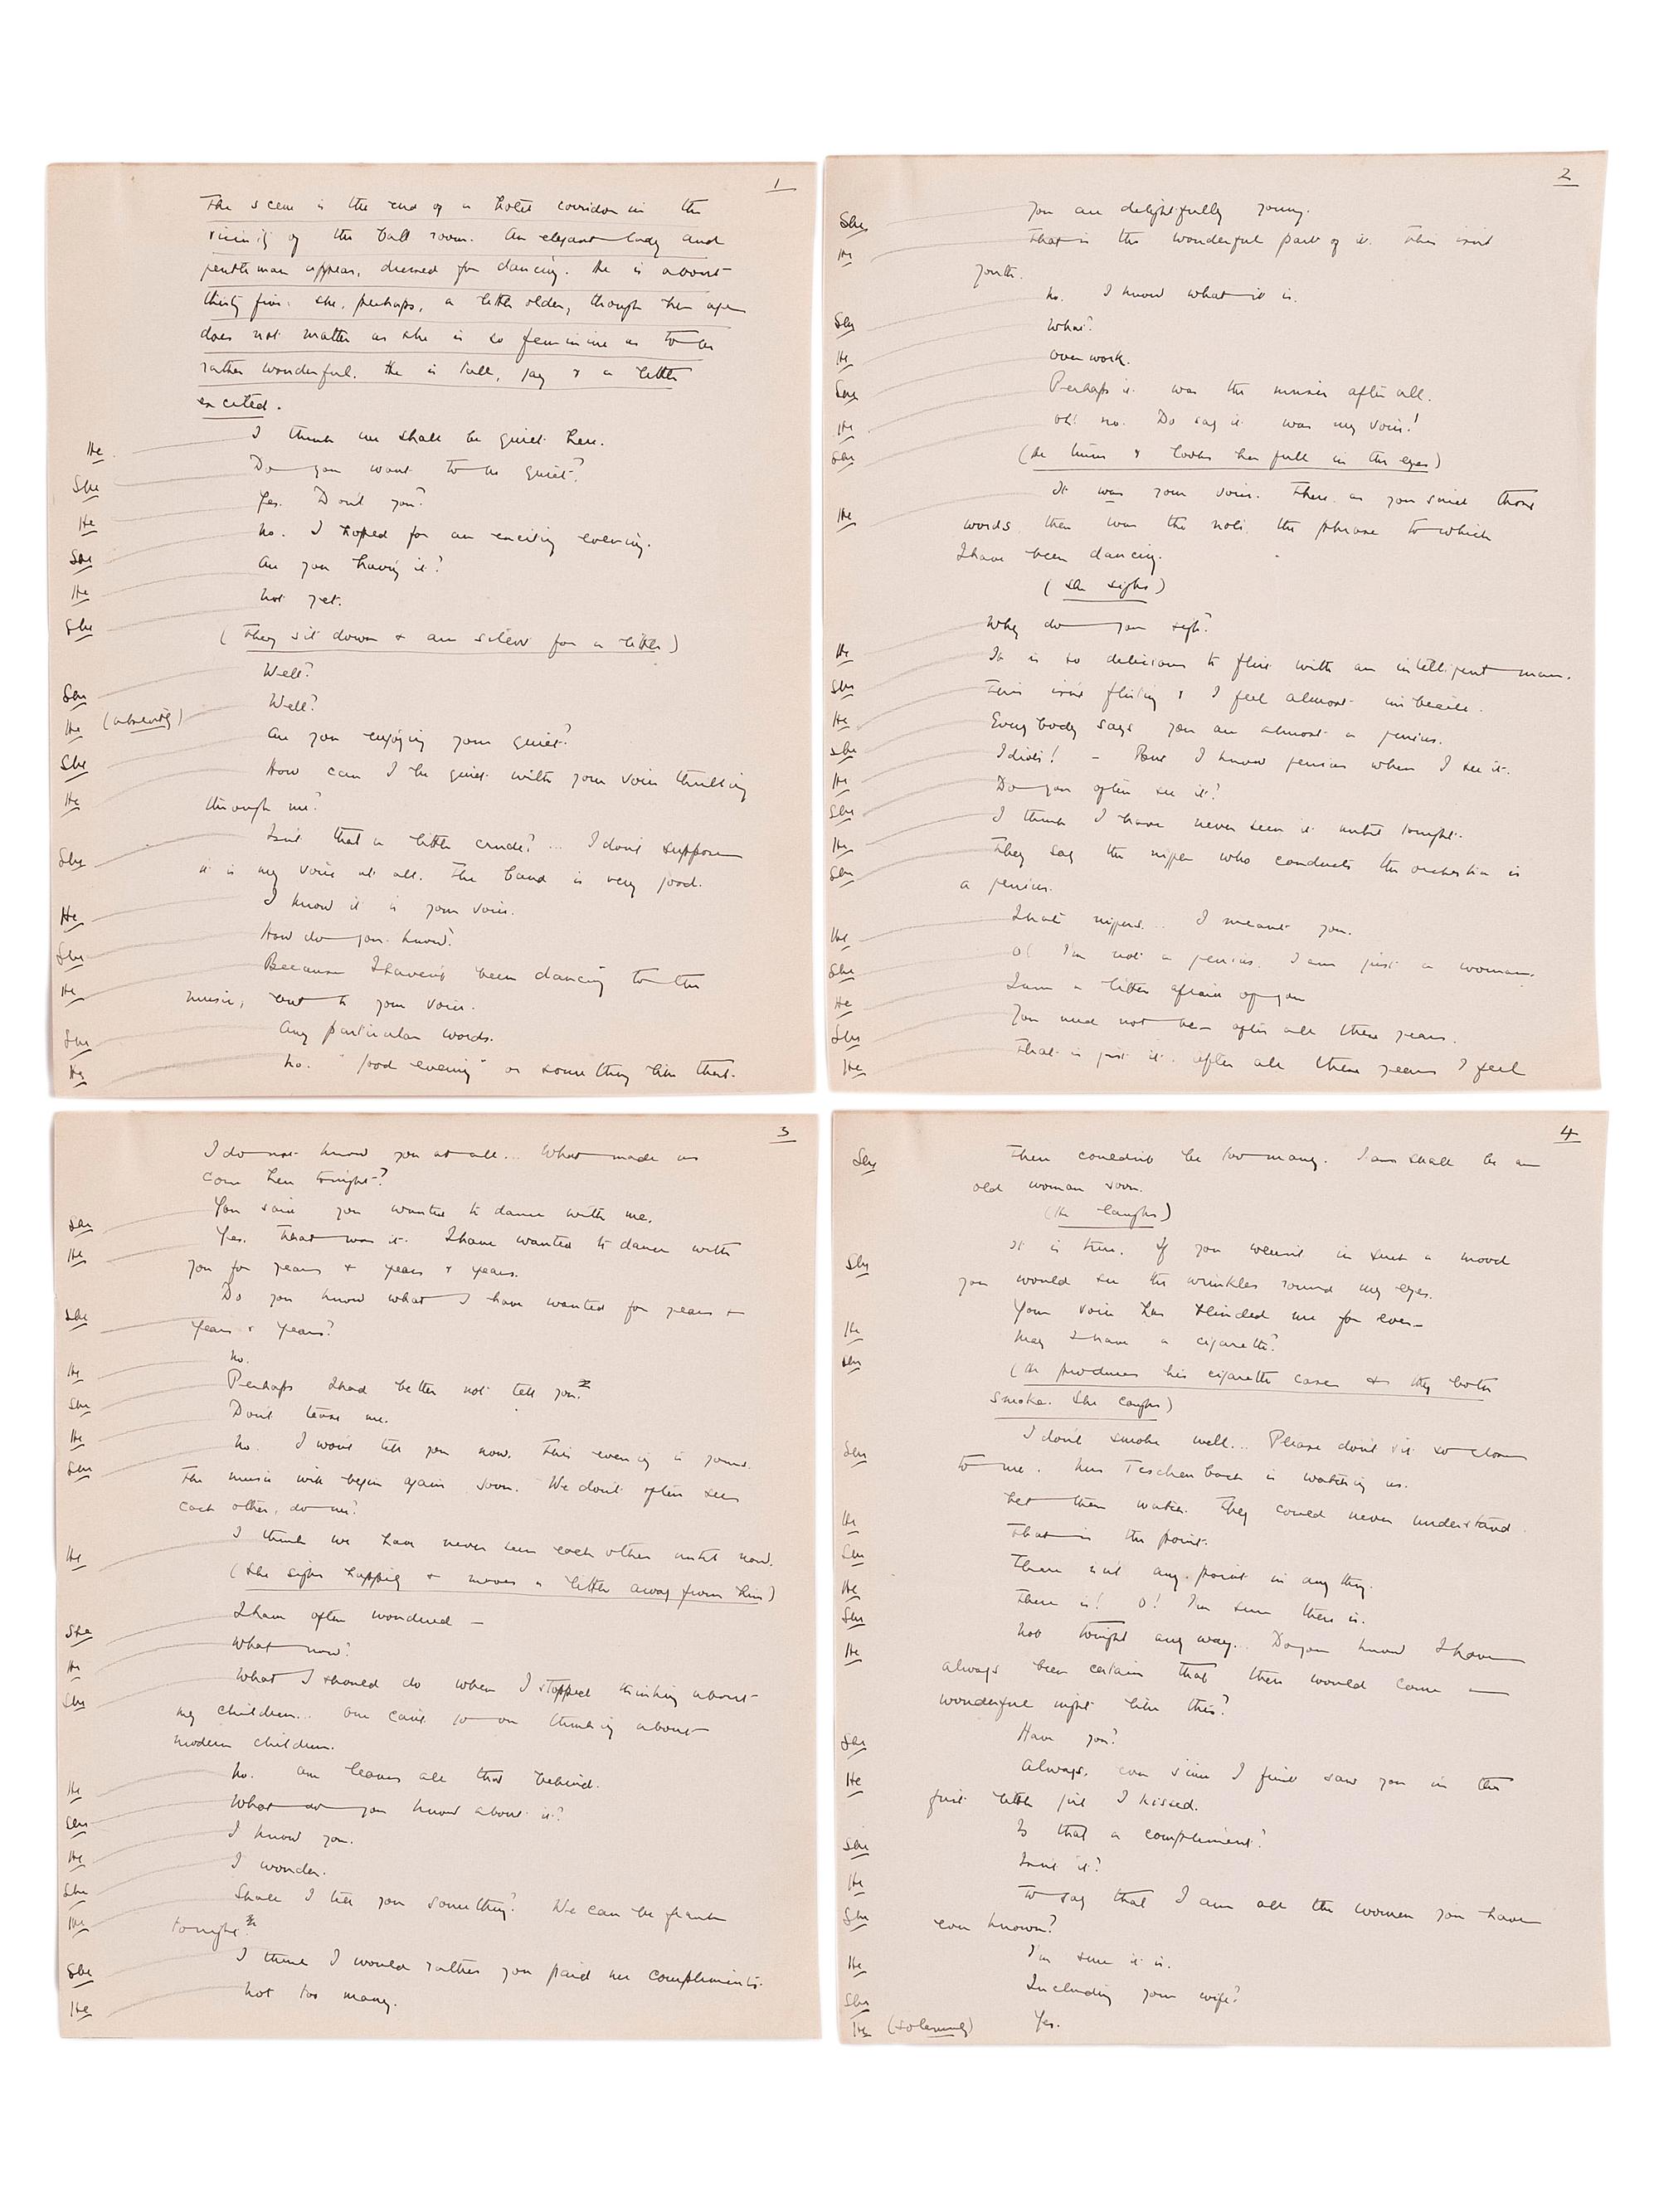 1
The scene is the end of a hotel corridor in the
vicinity of the ball room. An elegant lady and
gentleman appear, dressed for dancing. He is about
thirty five. She, perhaps, a little older, though her age
does not matter as she is so feminine as to be
rather wonderful. He is tall, gay & a little
excited.
He I think we shall be quiet here.
She Do you want to be quiet?
He Yes. Don't you?
She No. I hoped for an exciting evening.
He Are you having it?
She Not yet.
(They sit down & are silent for a little)
She Well?
He (absently) Well?
She Are you enjoying your quiet?
He How can I be quiet with your voice thrilling
through me?
She Isn't that a little crude? ... I don't suppose
it is my voice at all. The band is very good.
He I know it is your voice.
She How do you know?
He Because I haven't been dancing to the
music, but to your voice.
She Any particular words.
He No. "Good evening" or something like that.
2
She You are delightfully young.
He That is the wonderful part of it. This isn't
youth.
She No. I know what it is.
He What?
She Over work.
He Perhaps it was the music after all.
She Oh! no. Do say it was my voice!
(He turns & looks her full in the eyes)
He It was your voice. There as you said those
words there was the note, the phrase to which
I have been dancing.
(She sighs)
He Why do you sigh?
She It is so delicious to flirt with an intelligent man.
He This isn't flirting & I feel almost imbecile.
She Everybody says you are almost a genius.
He Idiots! - But I know genius when I see it.
She Do you often see it?
He I think I have never seen it until tonight.
She They say the nigger who conducts the orchestra is
a genius.
He I hate niggers... I meant you.
She O! I'm not a genius. I am just a woman.
He I am a little afraid of you
She You need not be - after all these years.
He That is just it. After all these years I feel
3
I do not know you at all... What made us
come here tonight?
She You said you wanted to dance with me.
He Yes. That was it. I have wanted to dance with
you for years & years & years.
She Do you know what I have wanted for years &
years & years?
He No.
She Perhaps I had better not tell you.
He Don't tease me.
She No. I won't tell you now. This evening is yours.
The music will begin again soon. We don't often see
each other, do we?
He I think we have never seen each other until now.
(She sighs happily & moves a little away from him)
She I have often wondered -
He What now?
She What I should do when I stopped thinking about
my children... One can't go on thinking about
modern children.
He No. One leaves all that behind.
She What do you know about it?
He I know you.
She I wonder.
He Shall I tell you something? We can be frank
tonight.
She I think I would rather you paid me compliments.
He Not too many.
4
She There couldn't be too many. I am shall be an
old woman soon.
(He laughs)
She It is true. If you weren't in such a mood
you would see the wrinkles round my eyes.
He Your voice has blinded me for ever -
She May I have a cigarette?
(He produces his cigarette case & they both
smoke. She coughs)
She I don't smoke well... Please don't sit so close
to me. Teschenback is watching us.
He Let them watch. They could never understand.
She That is the point.
He There isn't any point in any thing.
She There is! O! I'm sure there is.
He Not tonight any way... Do you know I have
always been certain that there would come a
wonderful night like this?
She Have you?
He Always. Ever since I first saw you in the
first little girl I kissed.
She Is that a compliment?
He Isn't it?
She To say that I am all the women you have
ever known?
He I'm sure it is.
She Including your wife?
He (solemnly) Yes.